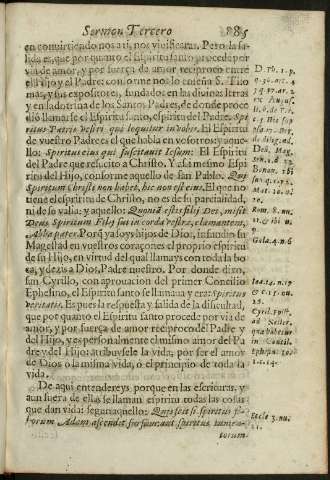 Sermon Tercero 885
en convirtiendo nos assi, nos vivificara. Pero la sa-
lida es, que por quanto el Espiritu santo procede por
via de amor, y por fuerça de amor reciproco entre
el Hijo y el Padre: conforme nos lo enseña S. Tho
mas, y sus expositores, fundados en las divinas letras
y en la dotrina de los Santos Padres, de donde proce
dio llamarse el Espiritu santo, espiritu del Padre. Spi
ritus Patris vestri qui loquitur in vobis. El Espiritu
de vuestro Padre es el que habla en vosotros: y aque-
llo: Spiritus eius qui suscitavit Iesum: El Espiritu
del Padre que resucitò a Christo. Y assi mesmo Espi
ritu del Hijo, conforme aquello de san Pablo. Qui
Spiritum Christi non habet, hic non est eius. El que no
tiene el espiritu de Christo, no es de su parcialidad,
ni de su valia: y aquello: Quoniã estis filij Dei, misit
Deus Spiritum Filij sui in corda vestra, clamantem,
Abba pater. Porq̃ ya soys hijos de Dios, infundio su
Magestad en vuestros coraçones el proprio espiritu
de su Hijo, en virtud del qual llamays con toda la bo
ca, y dezis a Dios, Padre nuestro. Por donde dixo,
san Cyrillo, con aprovacion del primer Concilio
Ephesino, el Espiritu santo se llamava y era: Spiritus
veritatis. Es pues la respuesta y salida de la dificultad,
que por quanto el Espiritu santo procede por via de
amor, y por fuerça de amor reciproco del Padre y
del Hijo, y es personalmente el mismo amor del Pa
dre y del Hijo: atribuysele la vida, por ser el amor
de Dios o la misma vida, o el principio de toda la
vida.
De aqui entendereys, porque en las escrituras, y
aun fuera de ellas se llaman espiritu todas las cosas
que dan vida: segun aquello: Quis scit si spiritus fi-
liorum Adam ascendat sursum: aut spiritus iumen-
torum
D. Th. 1. p.
Rom. 8. nu.
Gala. 4. n. 6
Ioa. 14. n. 17
Cyril.
in Concil.
Ephesi.
Eccle 3. nu.
21.